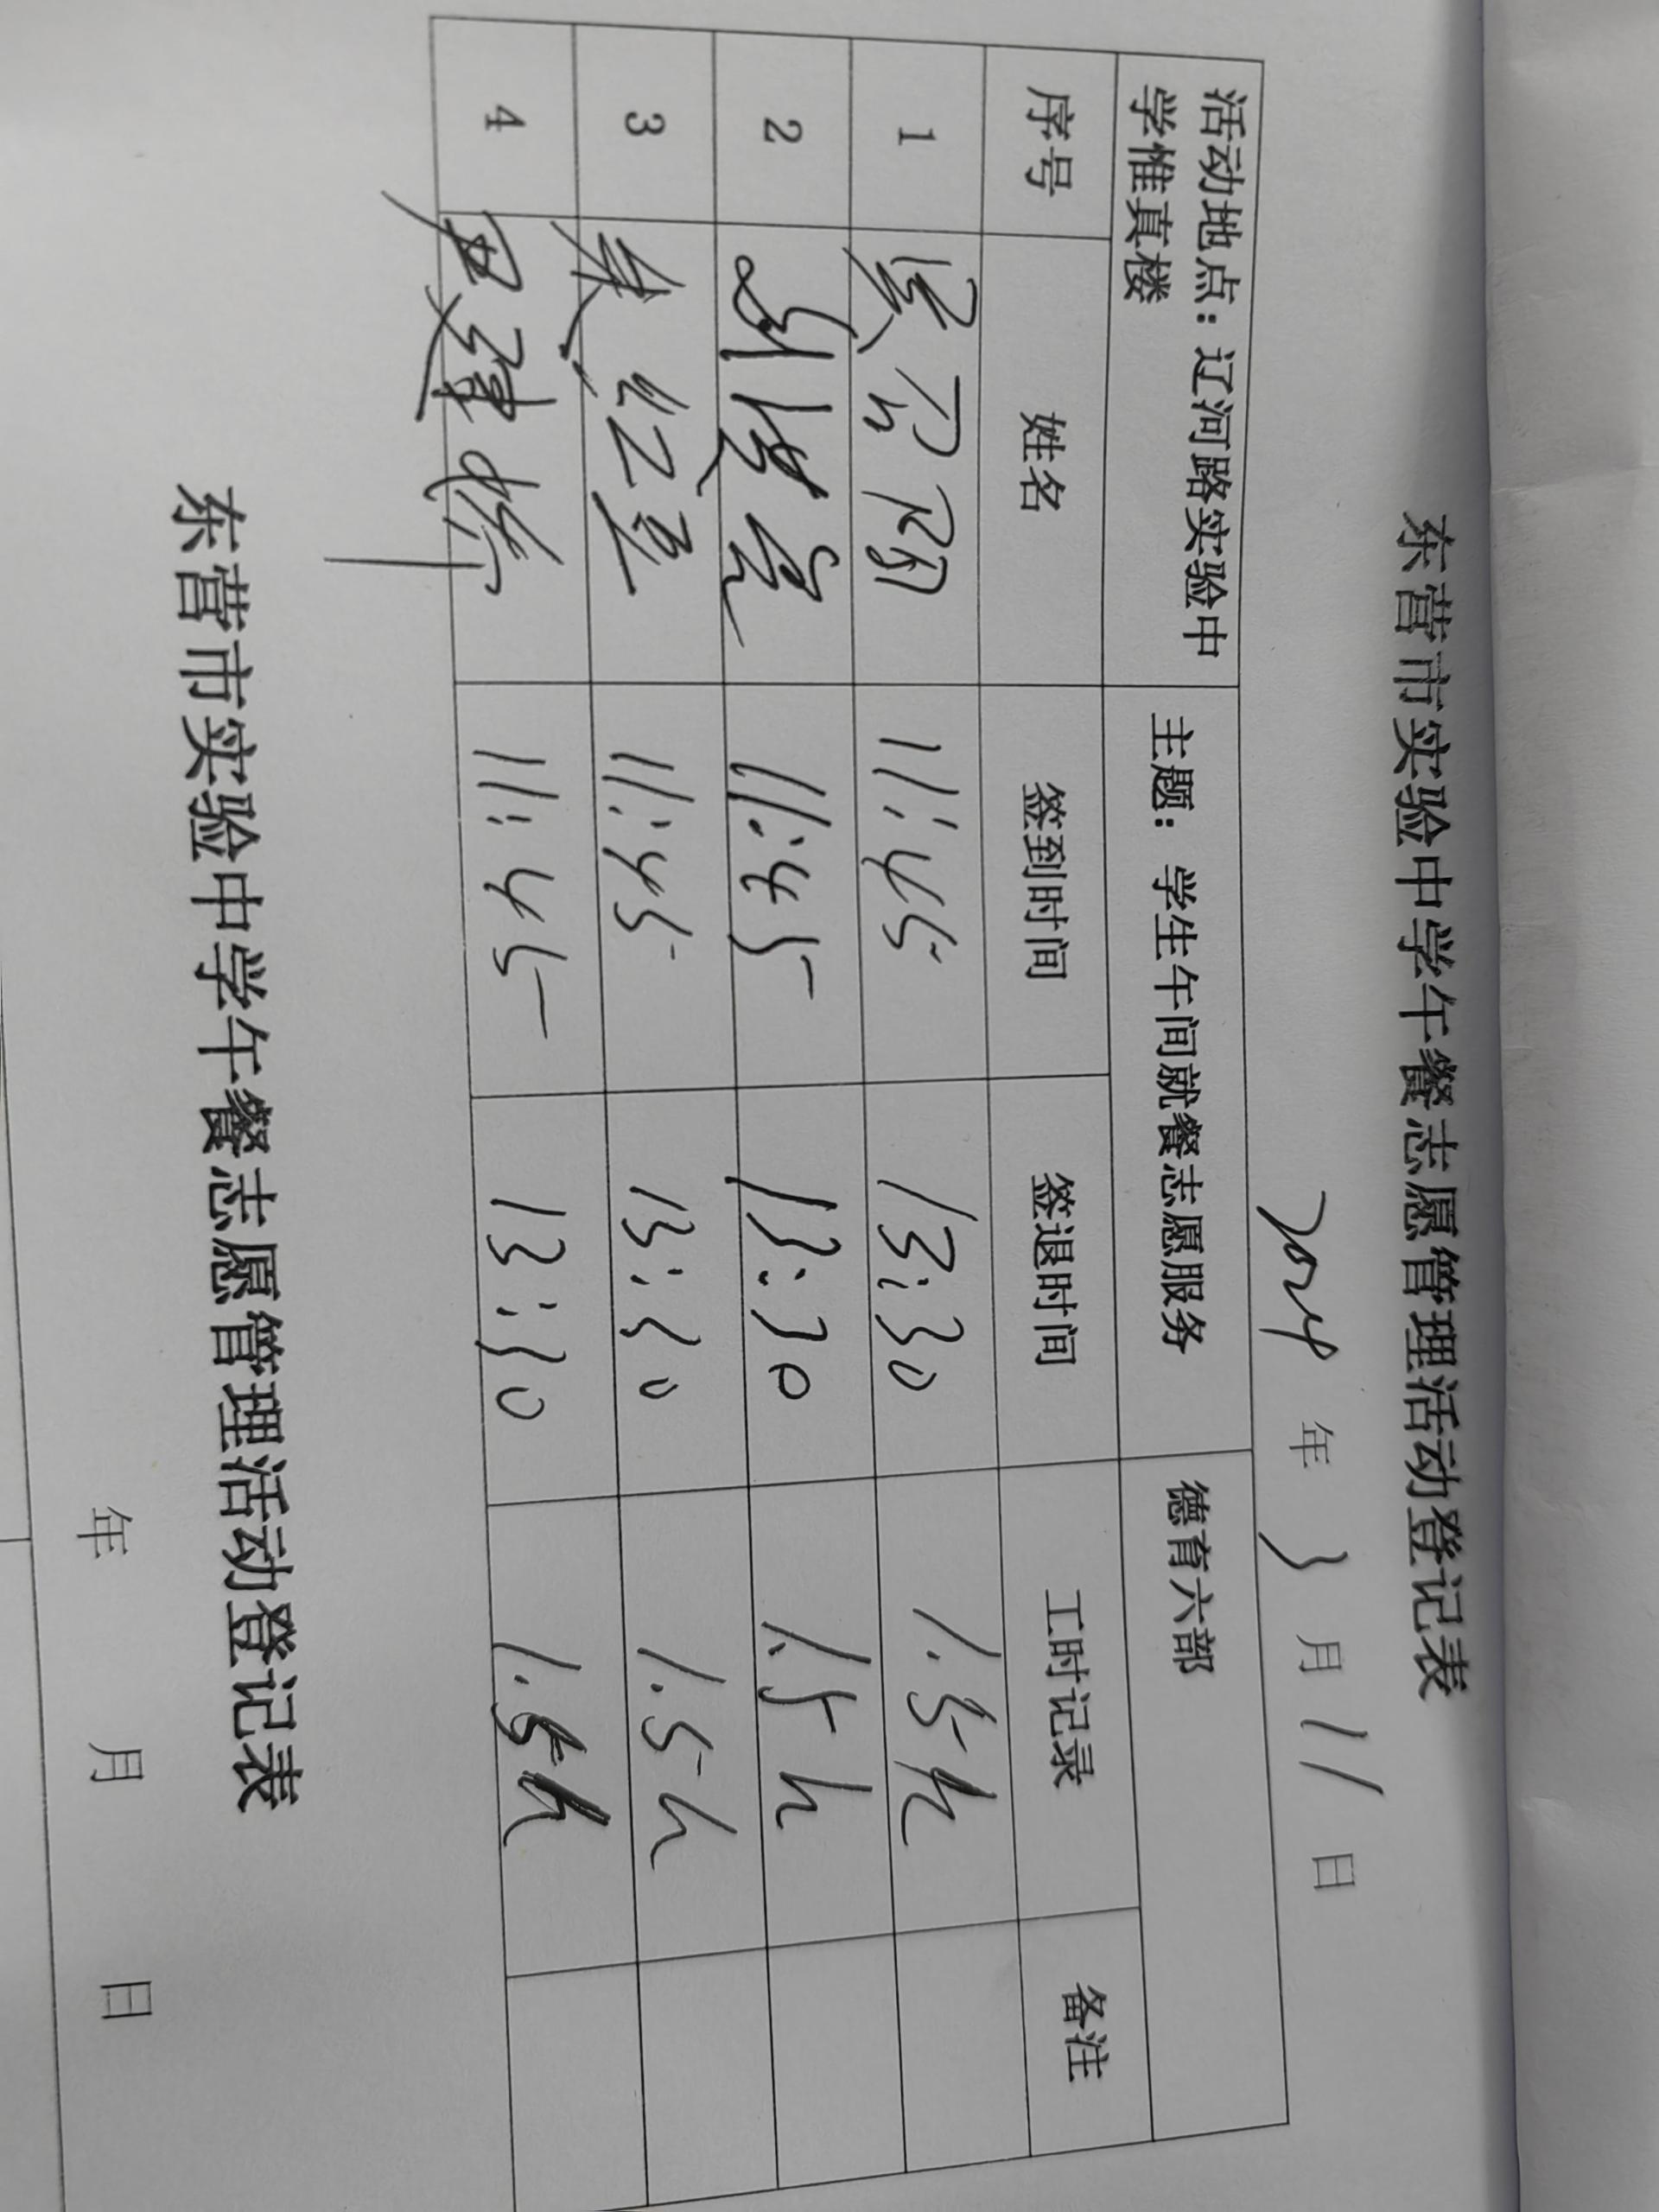 东营市实验中学午餐志愿管理活动登记表
2024 年 3 月 11 日
活动地点：辽河路实验中 主题：学生午间就餐志愿服务 德育六部
学惟真楼
序号 姓名 签到时间 签退时间 工时记录 备注
1 11:45 13:30 1.5h
2 11:45 13:30 1.5h
3 11:45 13:30 1.5h
4 11:45 13:30 1.5h
东营市实验中学午餐志愿管理活动登记表
年 月 日